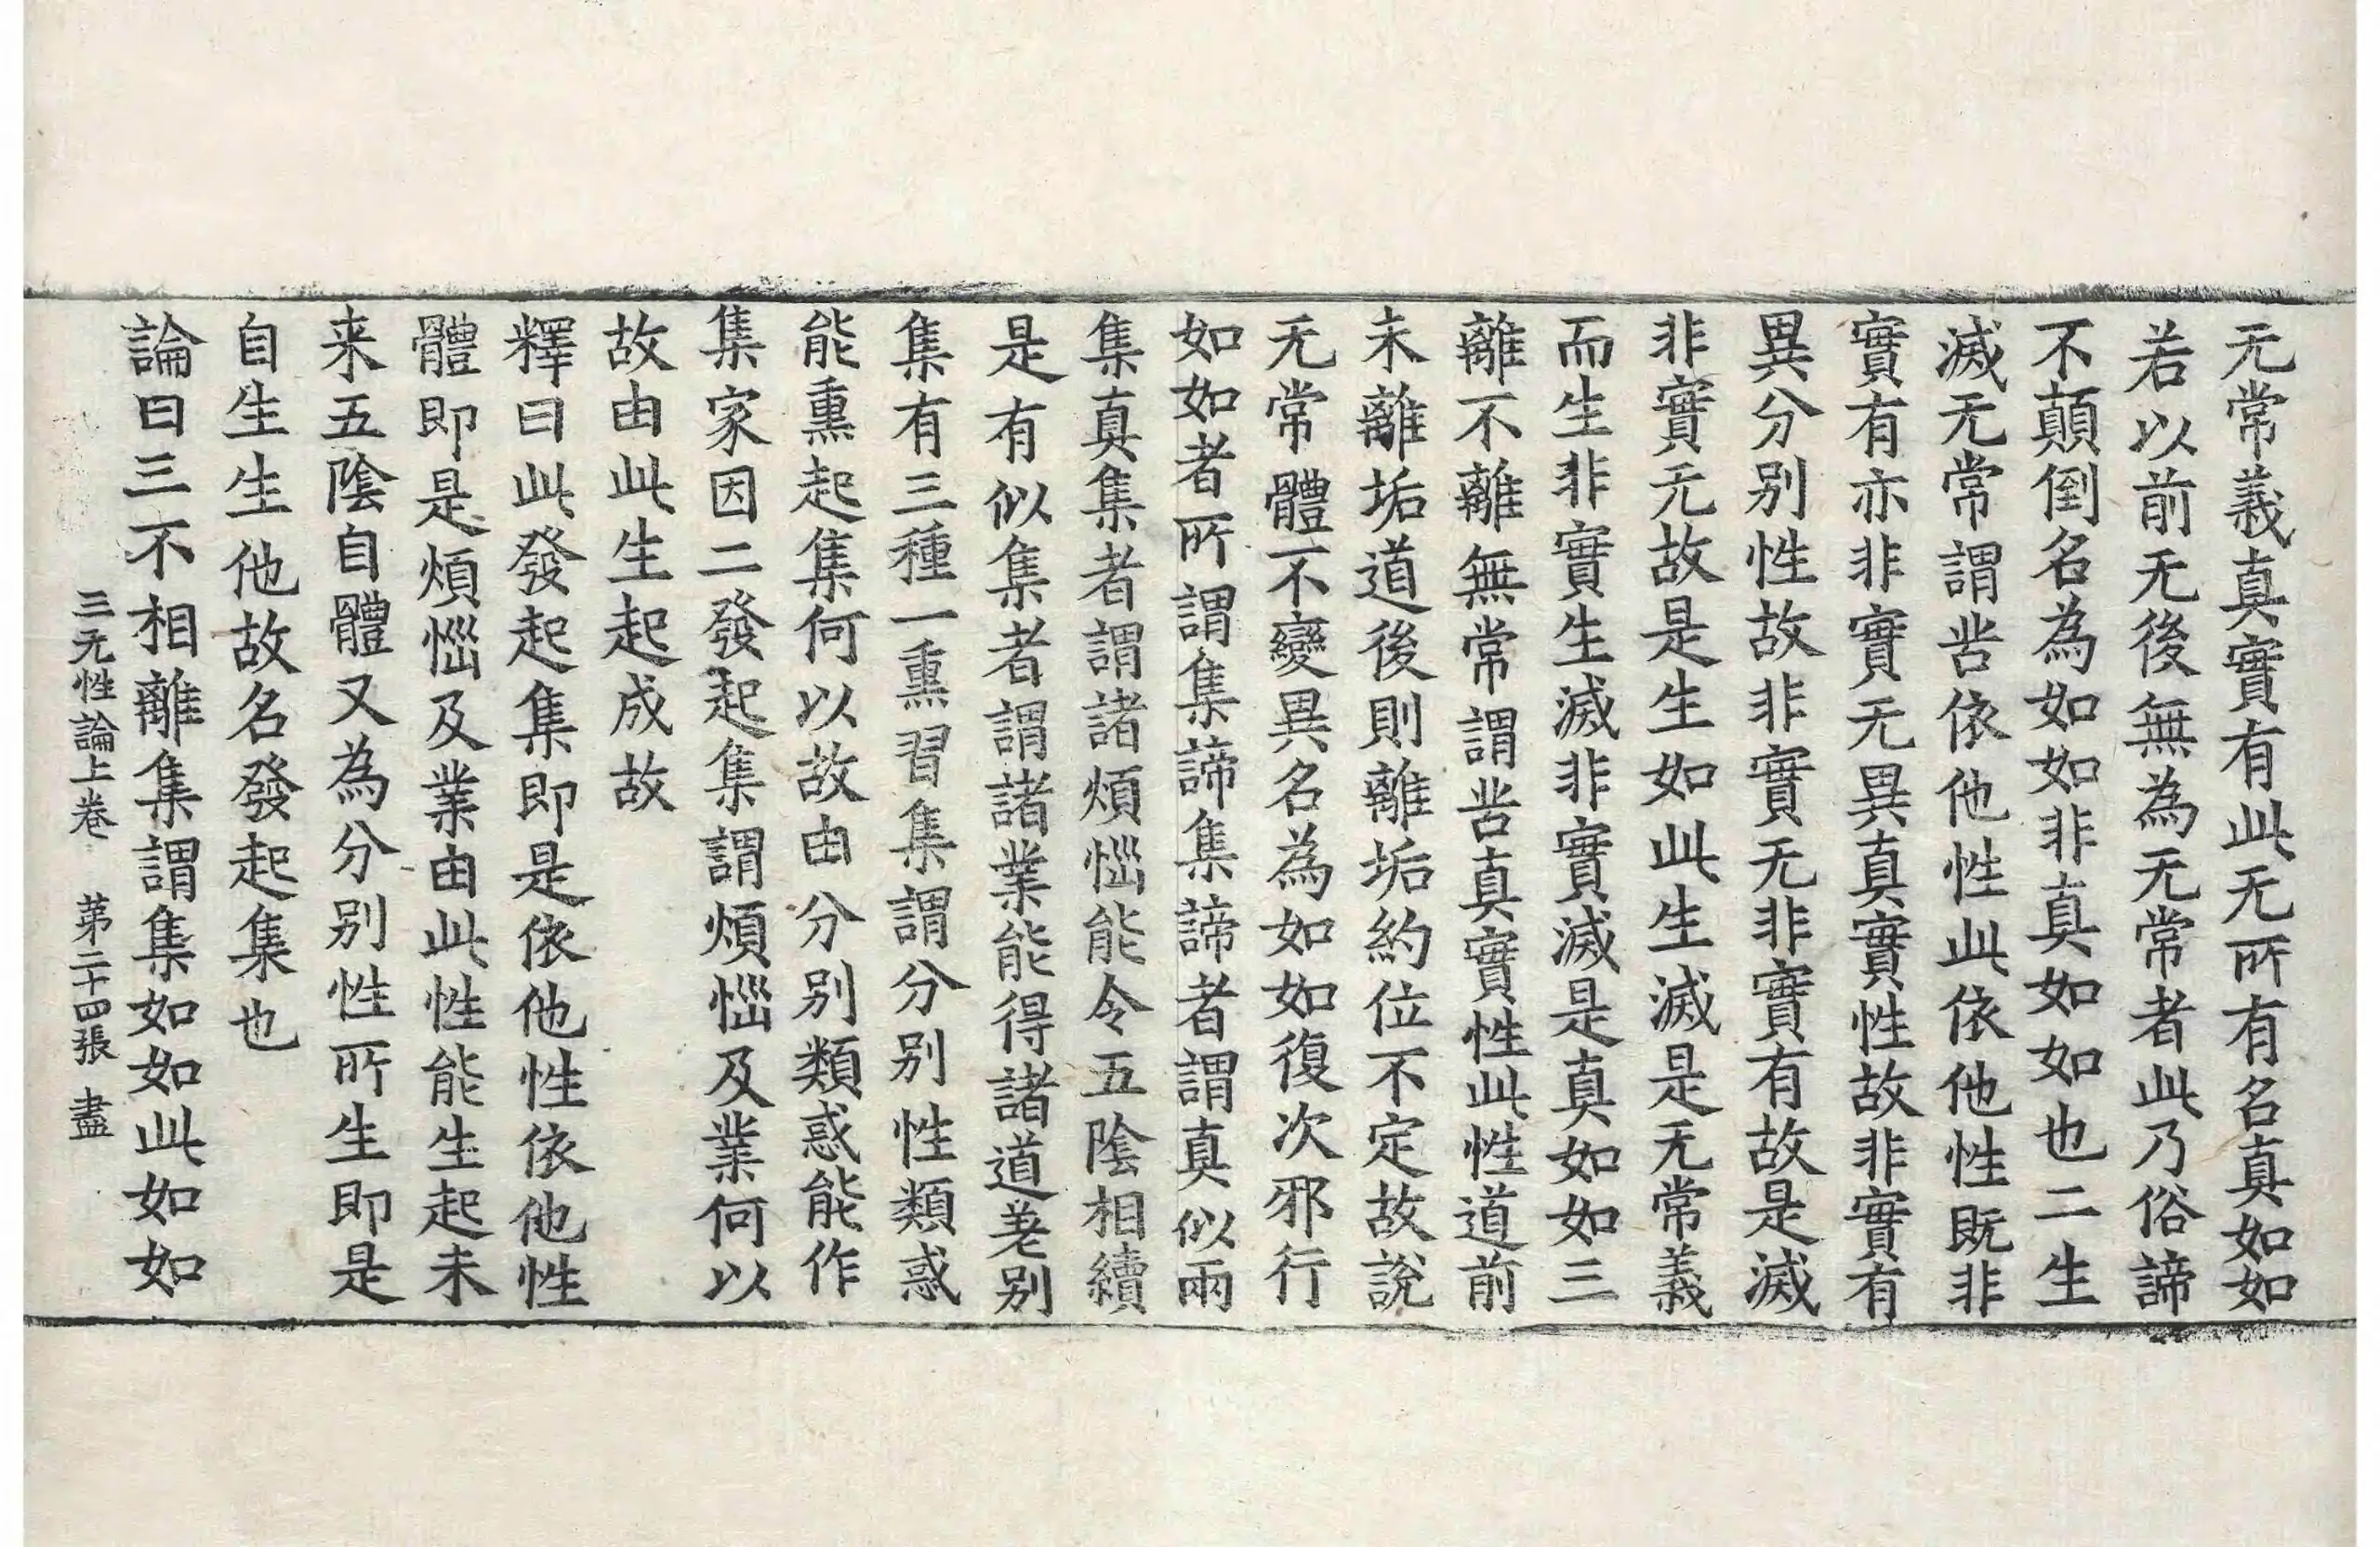 无常義真實有此无所有名真如如
若以前无後無為无常者此乃俗諦
不顛倒名為如如非真如如也二生
滅无常謂苦依他性此依他性既非
實有亦非實无異真實性故非實有
異分別性故非實无非實有故是滅
非實无故是生如此生滅是无常義
而生非實生滅非實滅是真如如三
離不離無常謂苦真實性此性道前
未離垢道後則離垢約位不定故說
无常體不變異名為如如復次邪行
如如者所謂集諦集諦者謂真似兩
集真集者謂諸煩惱能令五陰相續
是有似集者謂諸業能得諸道差別
集有三種一熏習集謂分別性類惑
能熏起集何以故由分別類惑能作
集家因二發起集謂煩惱及業何以
故由此生起成故
釋曰此發起集即是依他性依他性
體即是煩惱及業由此性能生起未
来五陰自體又為分別性所生即是
自生生他故名發起集也
論曰三不相離集謂集如如此如如
三无性論上卷　第二十四張　盡